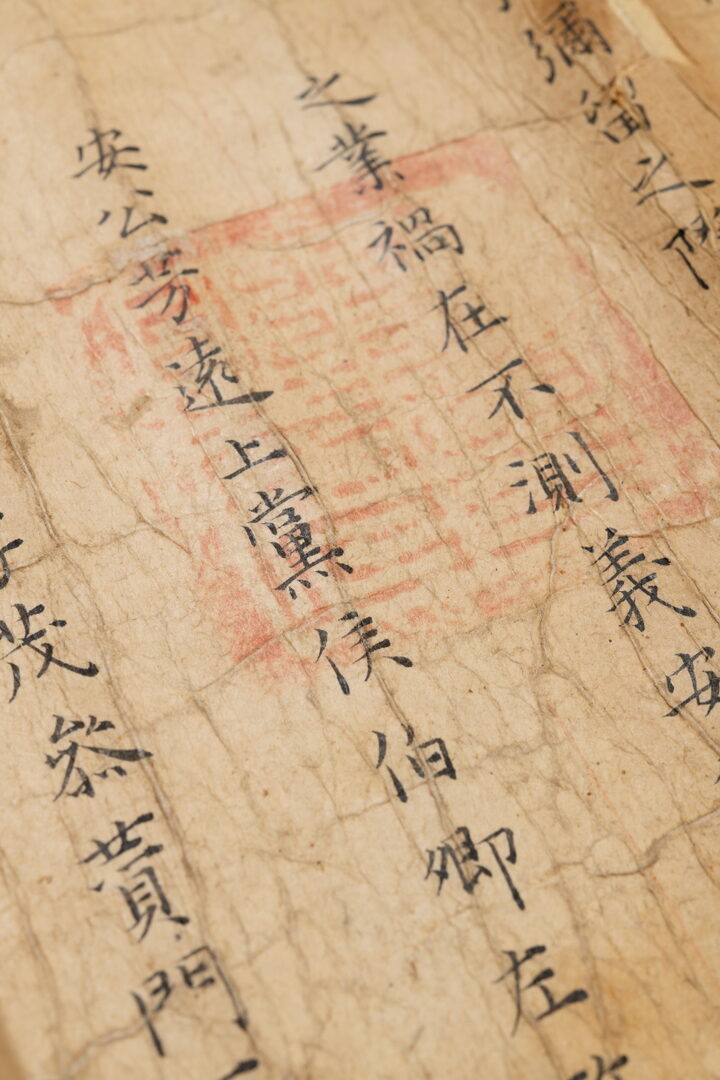 彌留之際
之業禍在不測義安
安公芳遠上黨侯伯卿左
茂叅賛門